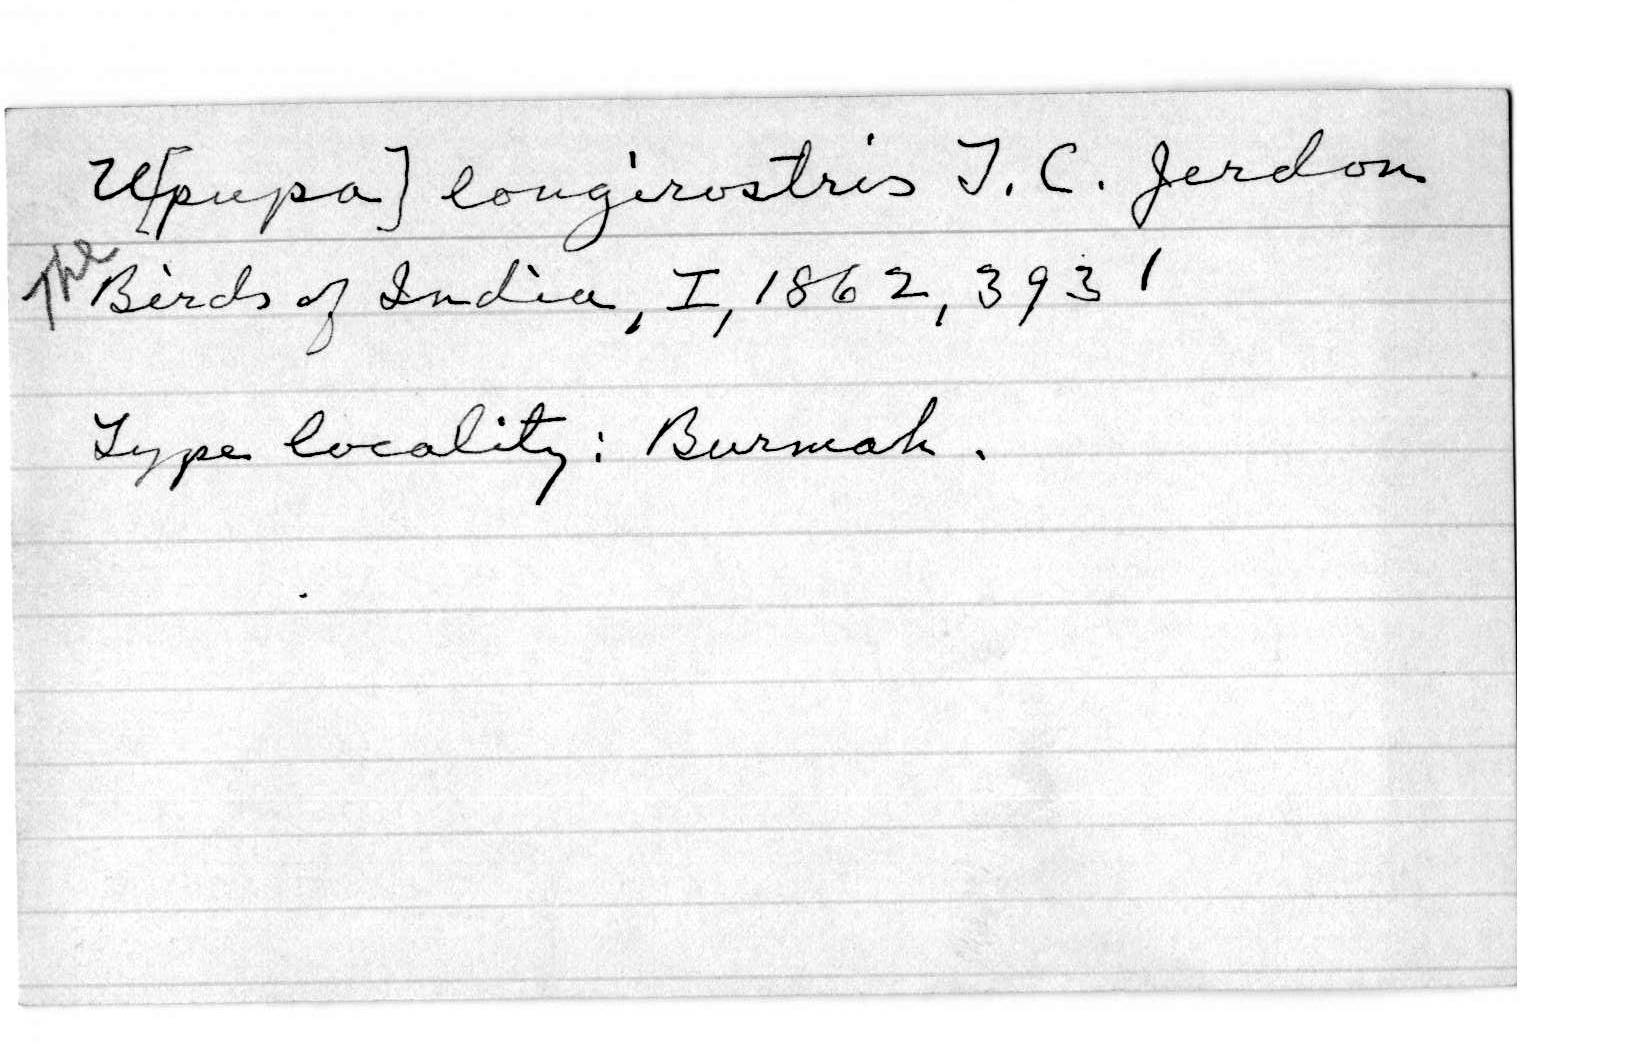 U[pupa] longirostris T. C. Jerdon
The Birds of India, I, 1862, 393 /
Type locality: Burmah.